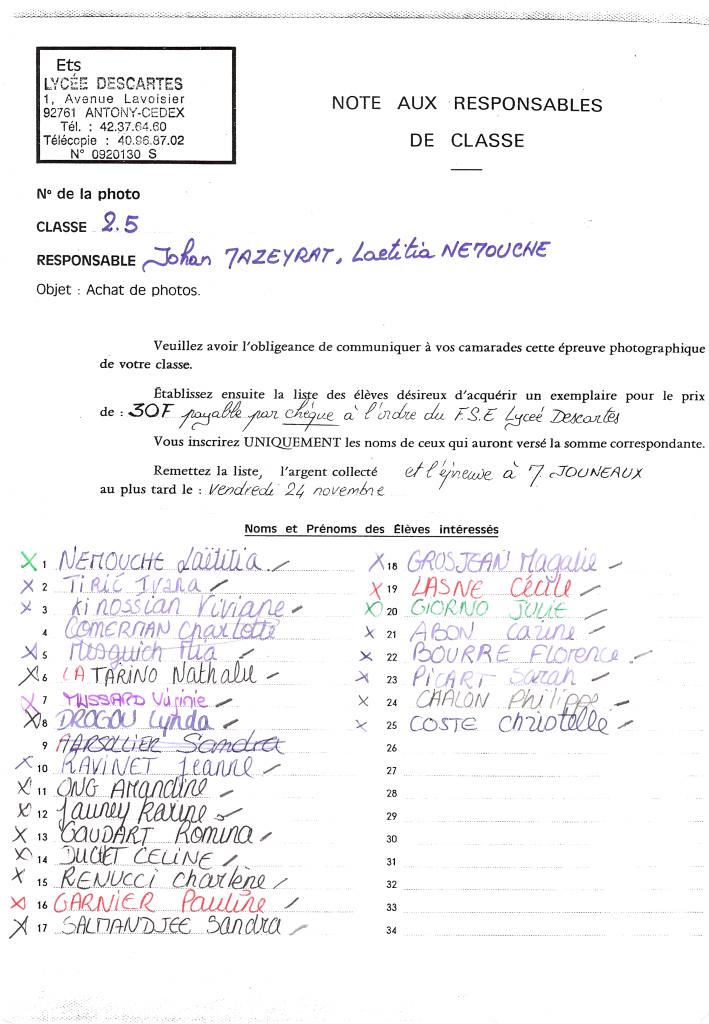 Ets
LYCÉE DESCARTES
1, Avenue Lavoisier
92761 ANTONY-CEDEX
Tél. : 42.37.64.60
Télécopie : 40.96.87.02
N° 0920130 S
NOTE AUX RESPONSABLES
DE CLASSE
N° de la photo
CLASSE 2.5
RESPONSABLE Johan TAZEYRAT, Laetitia NEMOUCHE
Objet : Achat de photos.
Veuillez avoir l'obligeance de communiquer à vos camarades cette épreuve photographique
de votre classe.
Établissez ensuite la liste des élèves désireux d'acquérir un exemplaire pour le prix
de : 30F payable par chèque à l'ordre du F.S.E Lyceé Descartes
Vous inscrirez UNIQUEMENT les noms de ceux qui auront versé la somme correspondante.
Remettez la liste, l'argent collecté et l'épreuve à JOUNEAUX
au plus tard le : Vendredi 24 novembre
Noms et Prénoms des Élèves intéressés
X 1 NEMOUCHE Laëtitia
X 2 TIRIĆ Ivana
X 3 Kinossian Viviane
4 COMERMAN Charlotte
X 5 Mesguich Mia
X 6 LATARINO Nathalie
X 7 MUSSARD Virginie
X 8 DROGOU Lynda
9 MARSOLLIER Sandra
X 10 RAVINET Jeanne
X 11 ONG AMANDINE
X 12 Jauney Karine
X 13 GAUDART Romina
X 14 DUCHET CELINE
X 15 RENUCCI Charlène
X 16 GARNIER Pauline
X 17 SALMANDJEE Sandra
X 18 GROSJEAN Magalie
X 19 LASNE Cécile
X 20 GIORNO JULIE
X 21 ABON Carine
X 22 BOURRE Florence
X 23 PICART Sarah
X 24 CHALON Philippe
X 25 COSTE Christelle
26
27
28
29
30
31
32
33
34